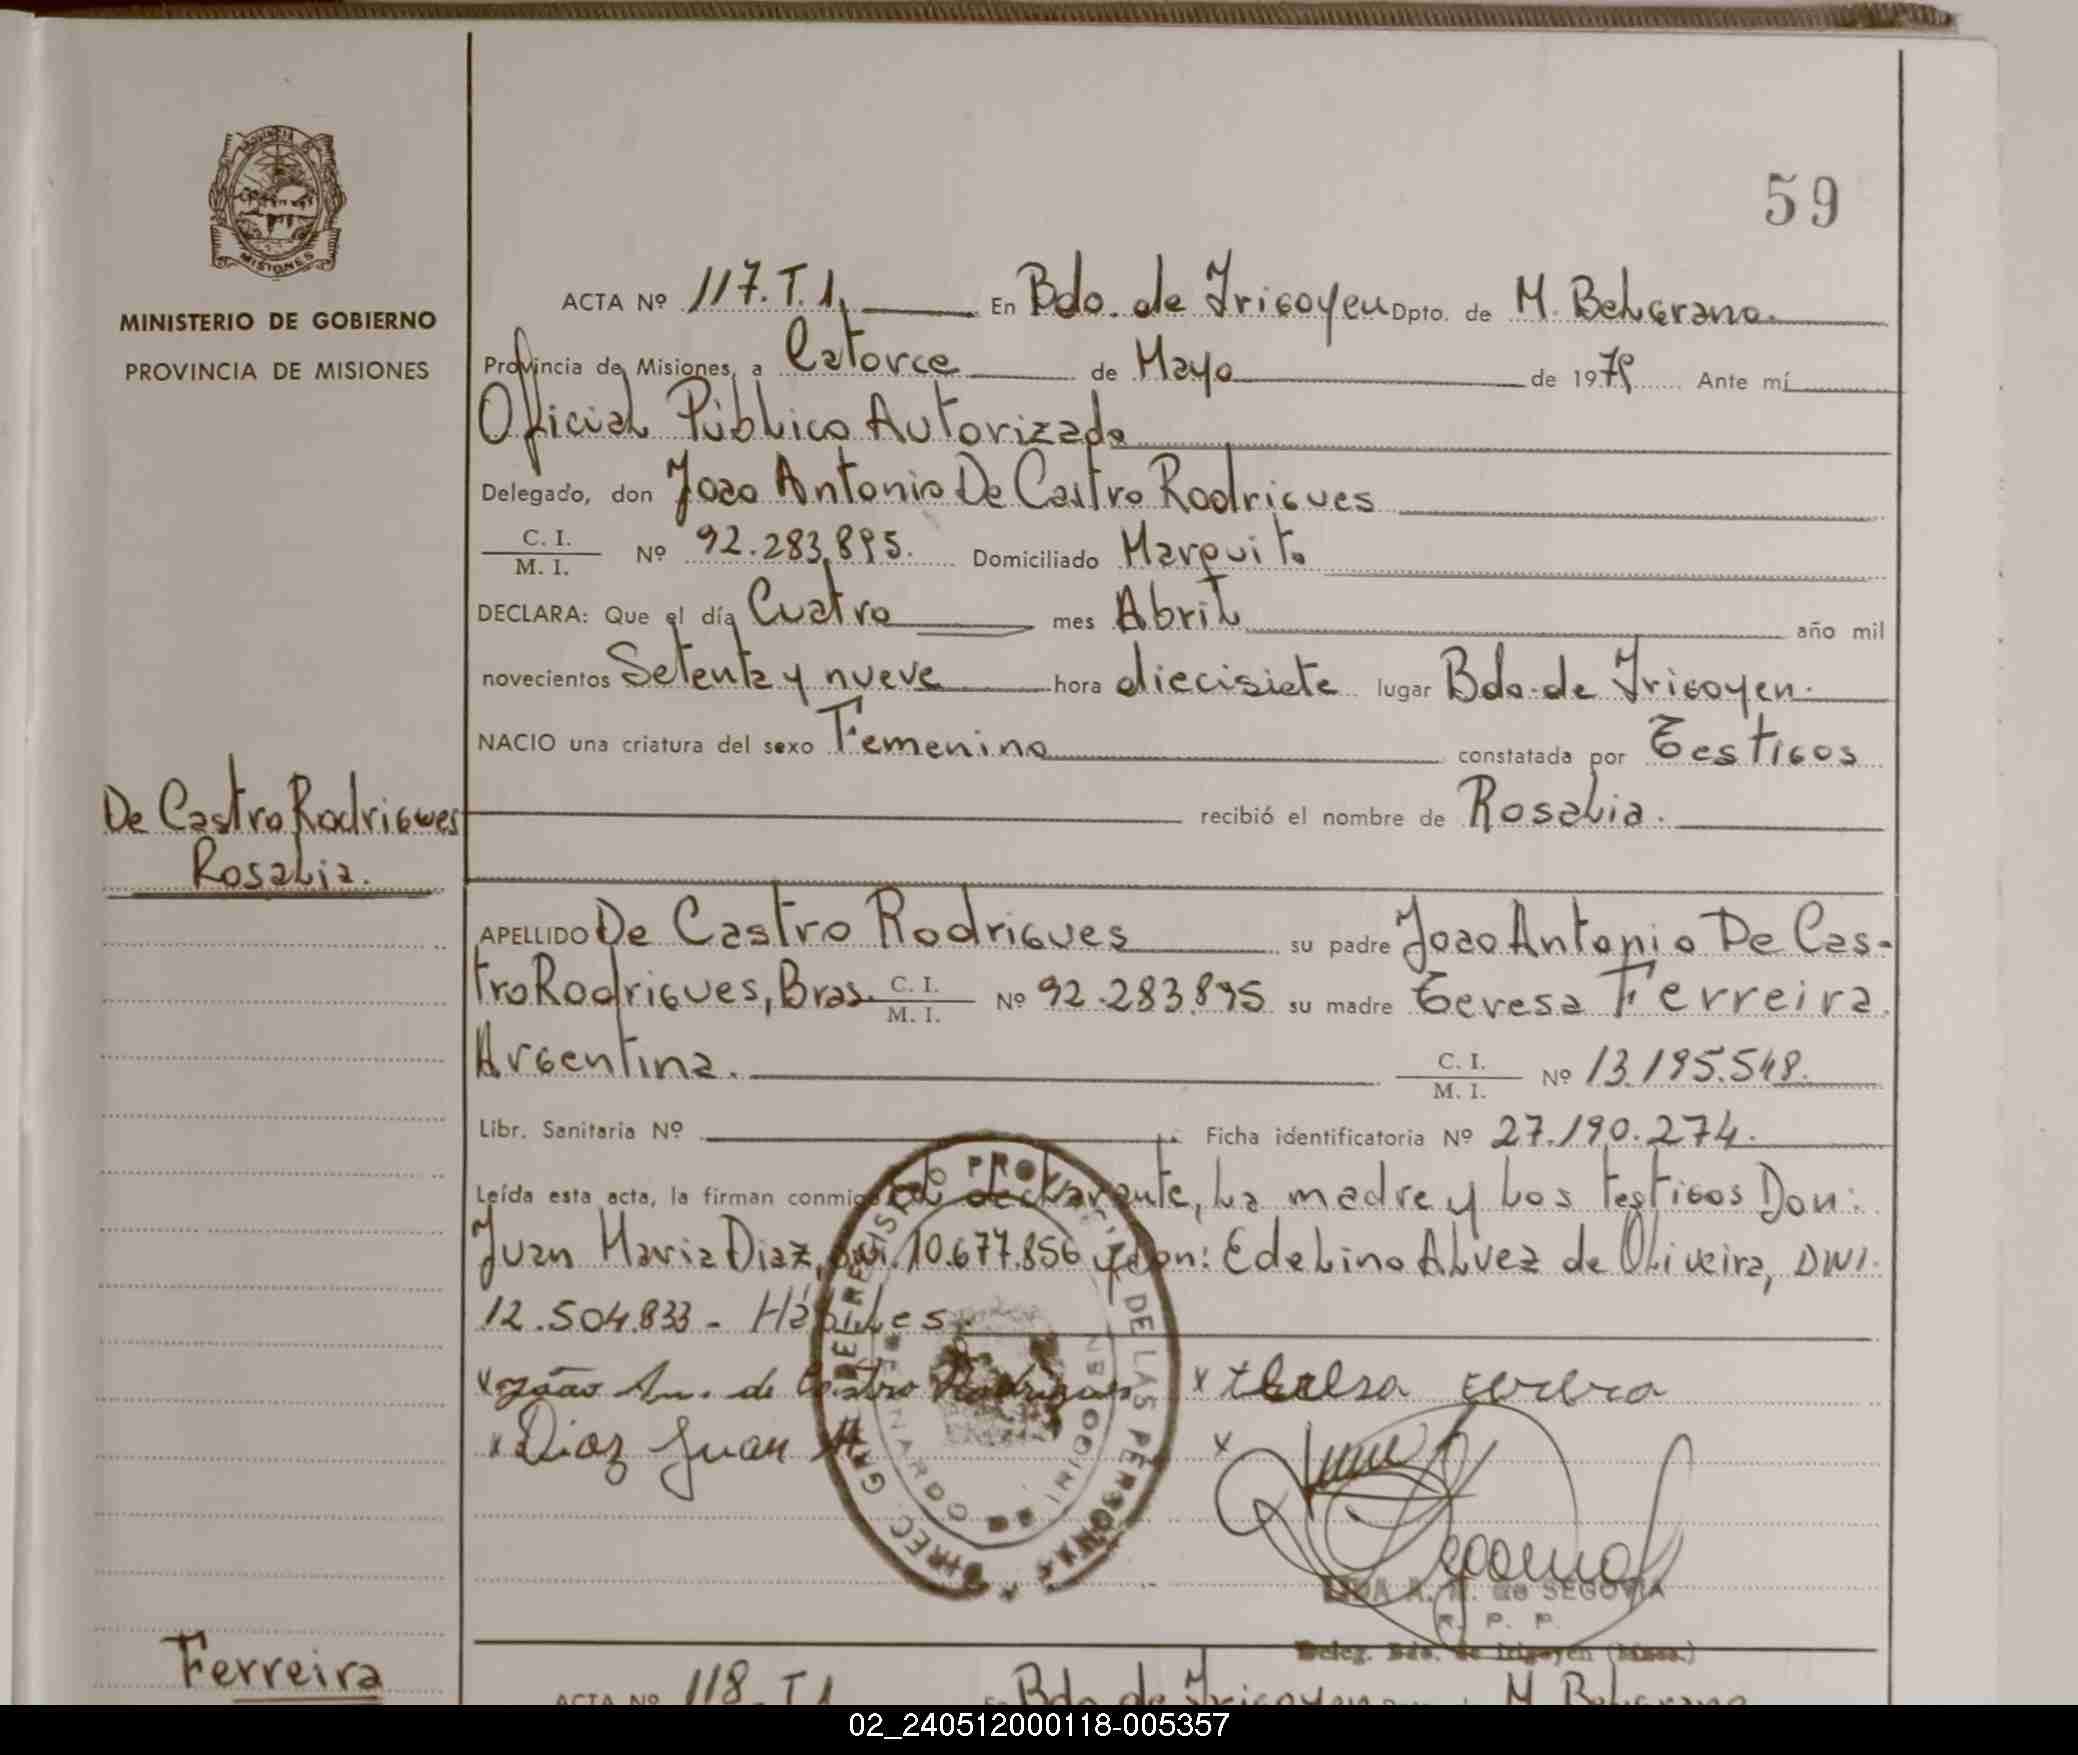 PROVINCIA
MISIONES
MINISTERIO DE GOBIERNO
PROVINCIA DE MISIONES
59
ACTA Nº 117. T. 1. En Bdo. de Irigoyen Dpto. de M. Belgrano.
Provincia de Misiones, a Catorce de Mayo de 1979 Ante mí
Oficial Público Autorizado
Delegado, don Joao Antonio De Castro Rodrigues
C. I.
M. I. Nº 92.283.895. Domiciliado Marquito
DECLARA: Que el día Cuatro mes Abril año mil
novecientos Setenta y nueve hora diecisiete lugar Bdo. de Irigoyen.
NACIO una criatura del sexo Femenino constatada por Testigos
recibió el nombre de Rosalia.
De Castro Rodrigues
Rosalia.
APELLIDO De Castro Rodrigues su padre Joao Antonio De Cas-
tro Rodrigues, Bras. C. I. M. I. Nº 92.283.895 su madre Teresa Ferreira
Argentina. C. I. M. I. Nº 13.195.548.
Libr. Sanitaria Nº Ficha identificatoria Nº 27.190.274.
Leída esta acta, la firman conmigo el declarante, la madre y los testigos Don:
Juan Maria Diaz, DNI. 10.677.856 y don: Edelino Alvez de Oliveira, DNI.
12.504.833 - Hábiles.
x João An. de Castro Rodrigues x
x Diaz Juan M x
DIREC. GRAL. DEL REGISTRO PROVINCIAL DE LAS PERSONAS
A. M. de SEGOVIA
R. P. P.
Deleg. Bdo. de Irigoyen (Mnes.)
Ferreira
ACTA Nº 118. T. 1 En Bdo de Irigoyen M. Belgrano
02_240512000118-005357